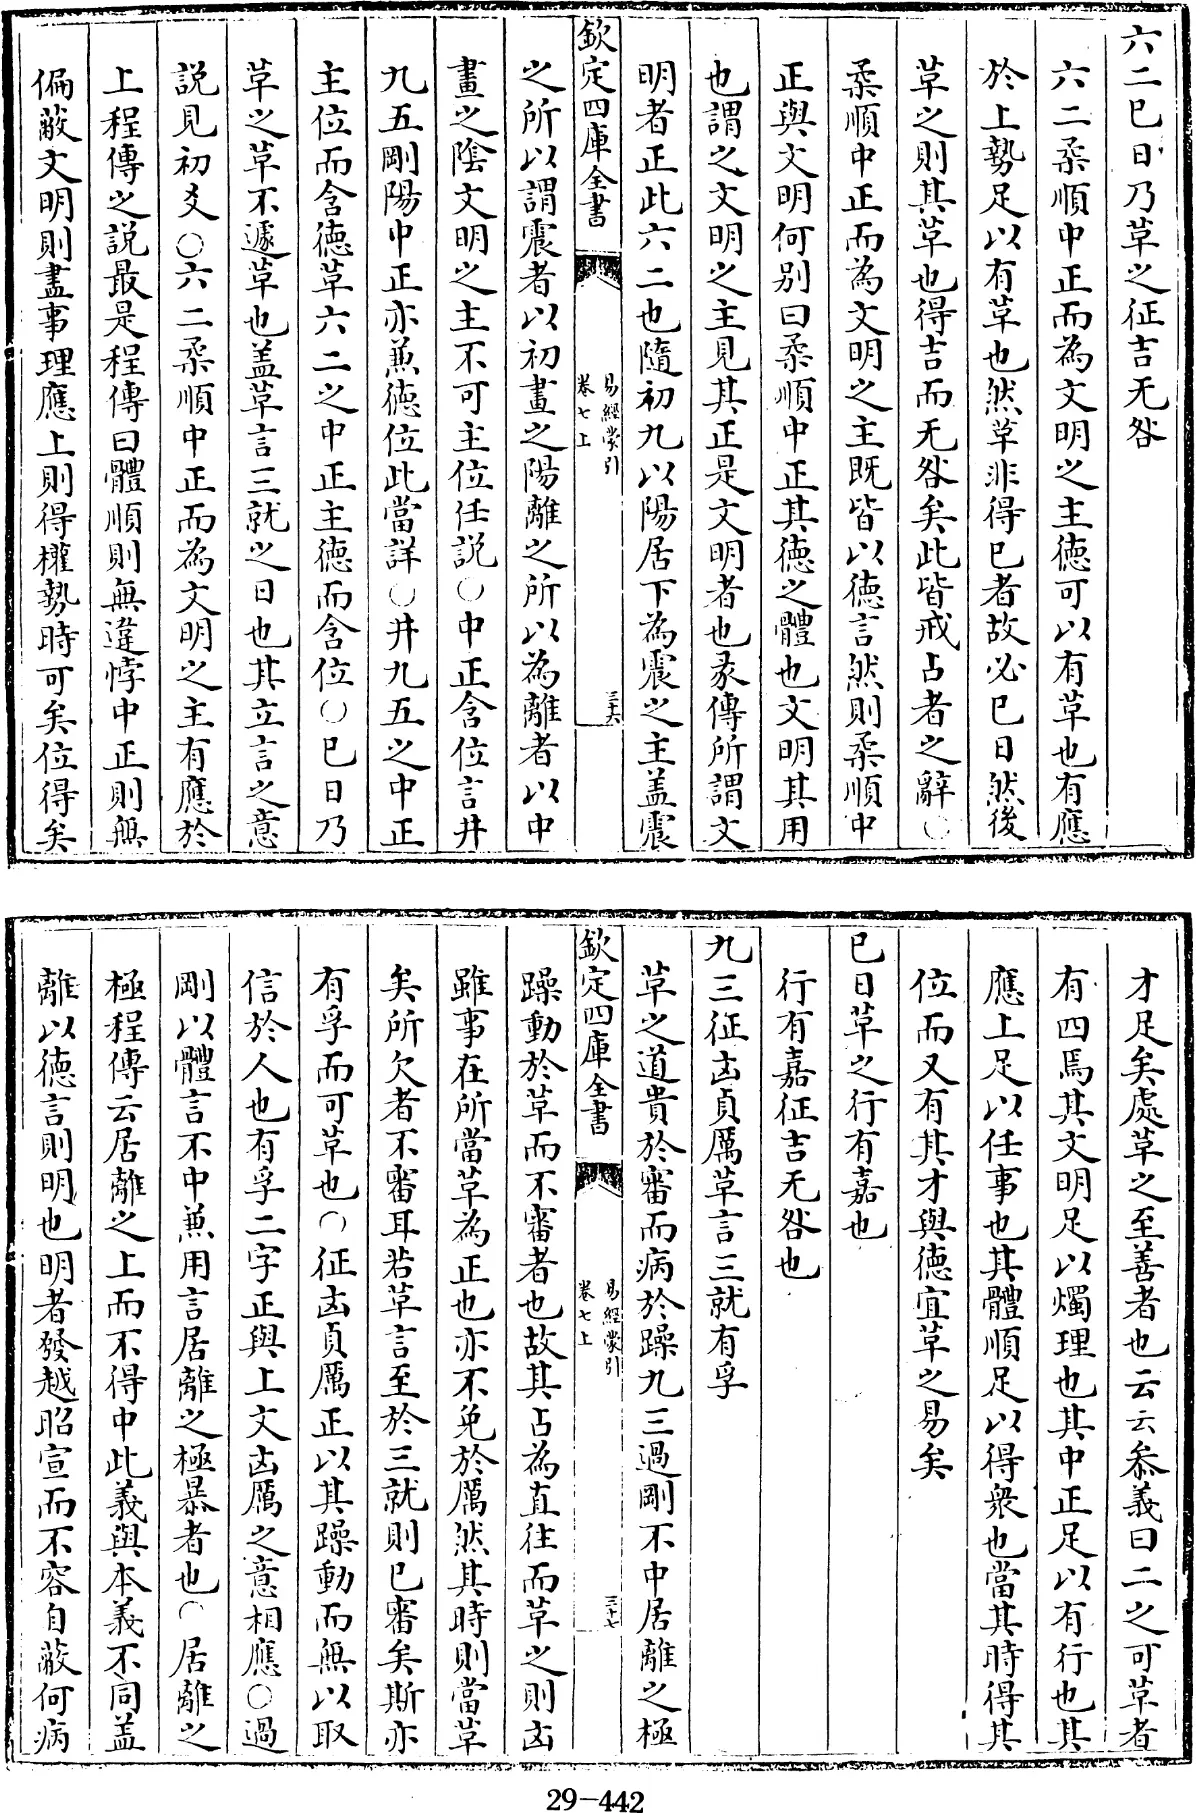 六二巳日乃革之征吉无咎
六二柔順中正而為文明之主徳可以有革也有應
於上勢足以有革也然革非得巳者故必巳日然後
革之則其革也得吉而无咎矣此皆戒占者之辭○
柔順中正而為文明之主既皆以徳言然則柔順中
正與文明何别曰柔順中正其徳之體也文明其用
也謂之文明之主見其正是文明者也彖傳所謂文
明者正此六二也隨初九以陽居下為震之主盖震
欽定四庫全書
易經蒙引
卷七上
三十六
之所以謂震者以初畫之陽離之所以為離者以中
畫之陰文明之主不可主位任説○中正含位言井
九五剛陽中正亦兼徳位此當詳○井九五之中正
主位而含徳革六二之中正主徳而含位○巳日乃
革之革不遽革也盖革言三就之日也其立言之意
説見初爻○六二柔順中正而為文明之主有應於
上程傳之説最是程傳曰體順則無違悖中正則無
偏蔽文明則盡事理應上則得權勢時可矣位得矣
才足矣處革之至善者也云云叅義曰二之可革者
有四焉其文明足以燭理也其中正足以有行也其
應上足以任事也其體順足以得衆也當其時得其
位而又有其才與徳宜革之易矣
巳日革之行有嘉也
行有嘉征吉无咎也
九三征凶貞厲革言三就有孚
革之道貴於審而病於躁九三過剛不中居離之極
欽定四庫全書
易經蒙引
卷七上
三十七
躁動於革而不審者也故其占為直往而革之則凶
雖事在所當革為正也亦不免於厲然其時則當革
矣所欠者不審耳若革言至於三就則巳審矣斯亦
有孚而可革也○征凶貞厲正以其躁動而無以取
信於人也有孚二字正與上文凶厲之意相應○過
剛以體言不中兼用言居離之極暴者也○居離之
極程傳云居離之上而不得中此義與本義不同盖
離以徳言則明也明者發越昭宣而不容自蔽何病
29-442